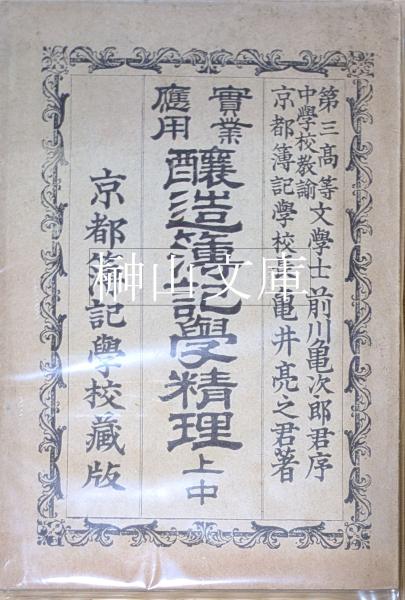 第三高等中學校教諭 文學士 前川亀次郎君序
京都簿記學校主 亀井亮之君著
實業應用
釀造簿記學精理 上中
京都簿記學校藏版
榊山文庫